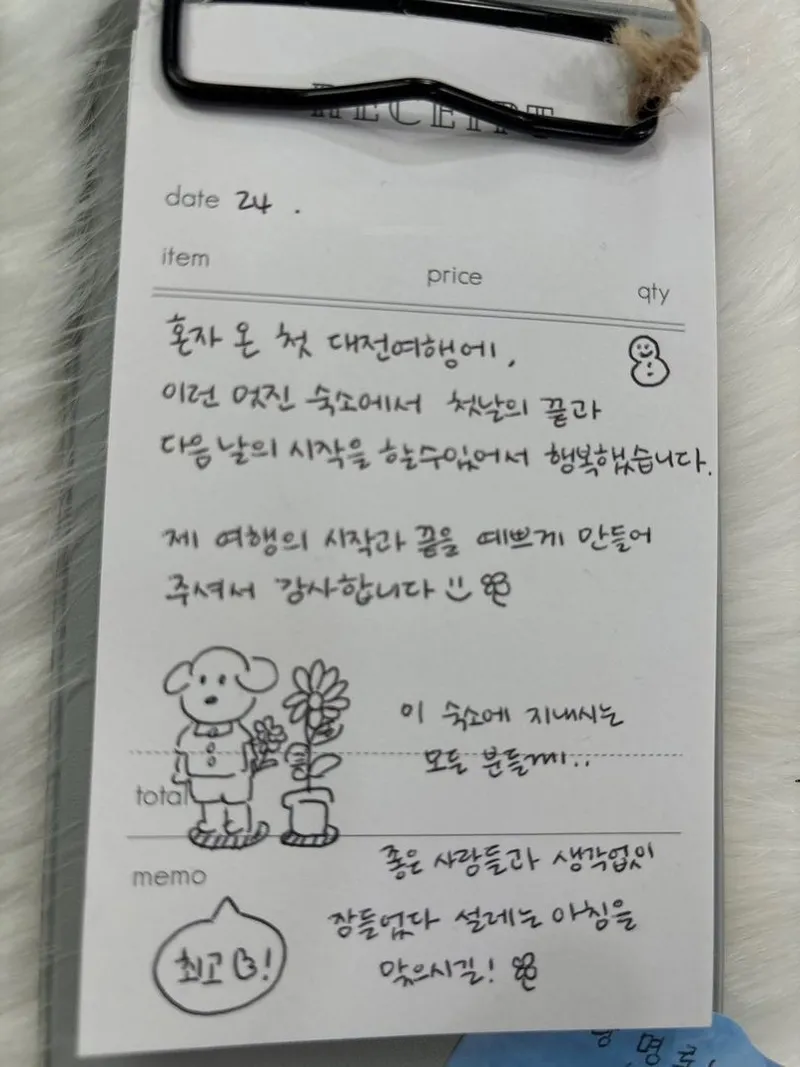 RECEIPT
date 24 .
item price qty
혼자 온 첫 대전여행에,
이런 멋진 숙소에서 첫날의 끝과
다음날의 시작을 할수있어서 행복했습니다.
제 여행의 시작과 끝을 예쁘게 만들어
주셔서 감사합니다
이 숙소에 지내시는
모든 분들께..
total
좋은 사람들과 생각없이
memo
잠들었다 설레는 아침을
최고!
맞으시길!
명